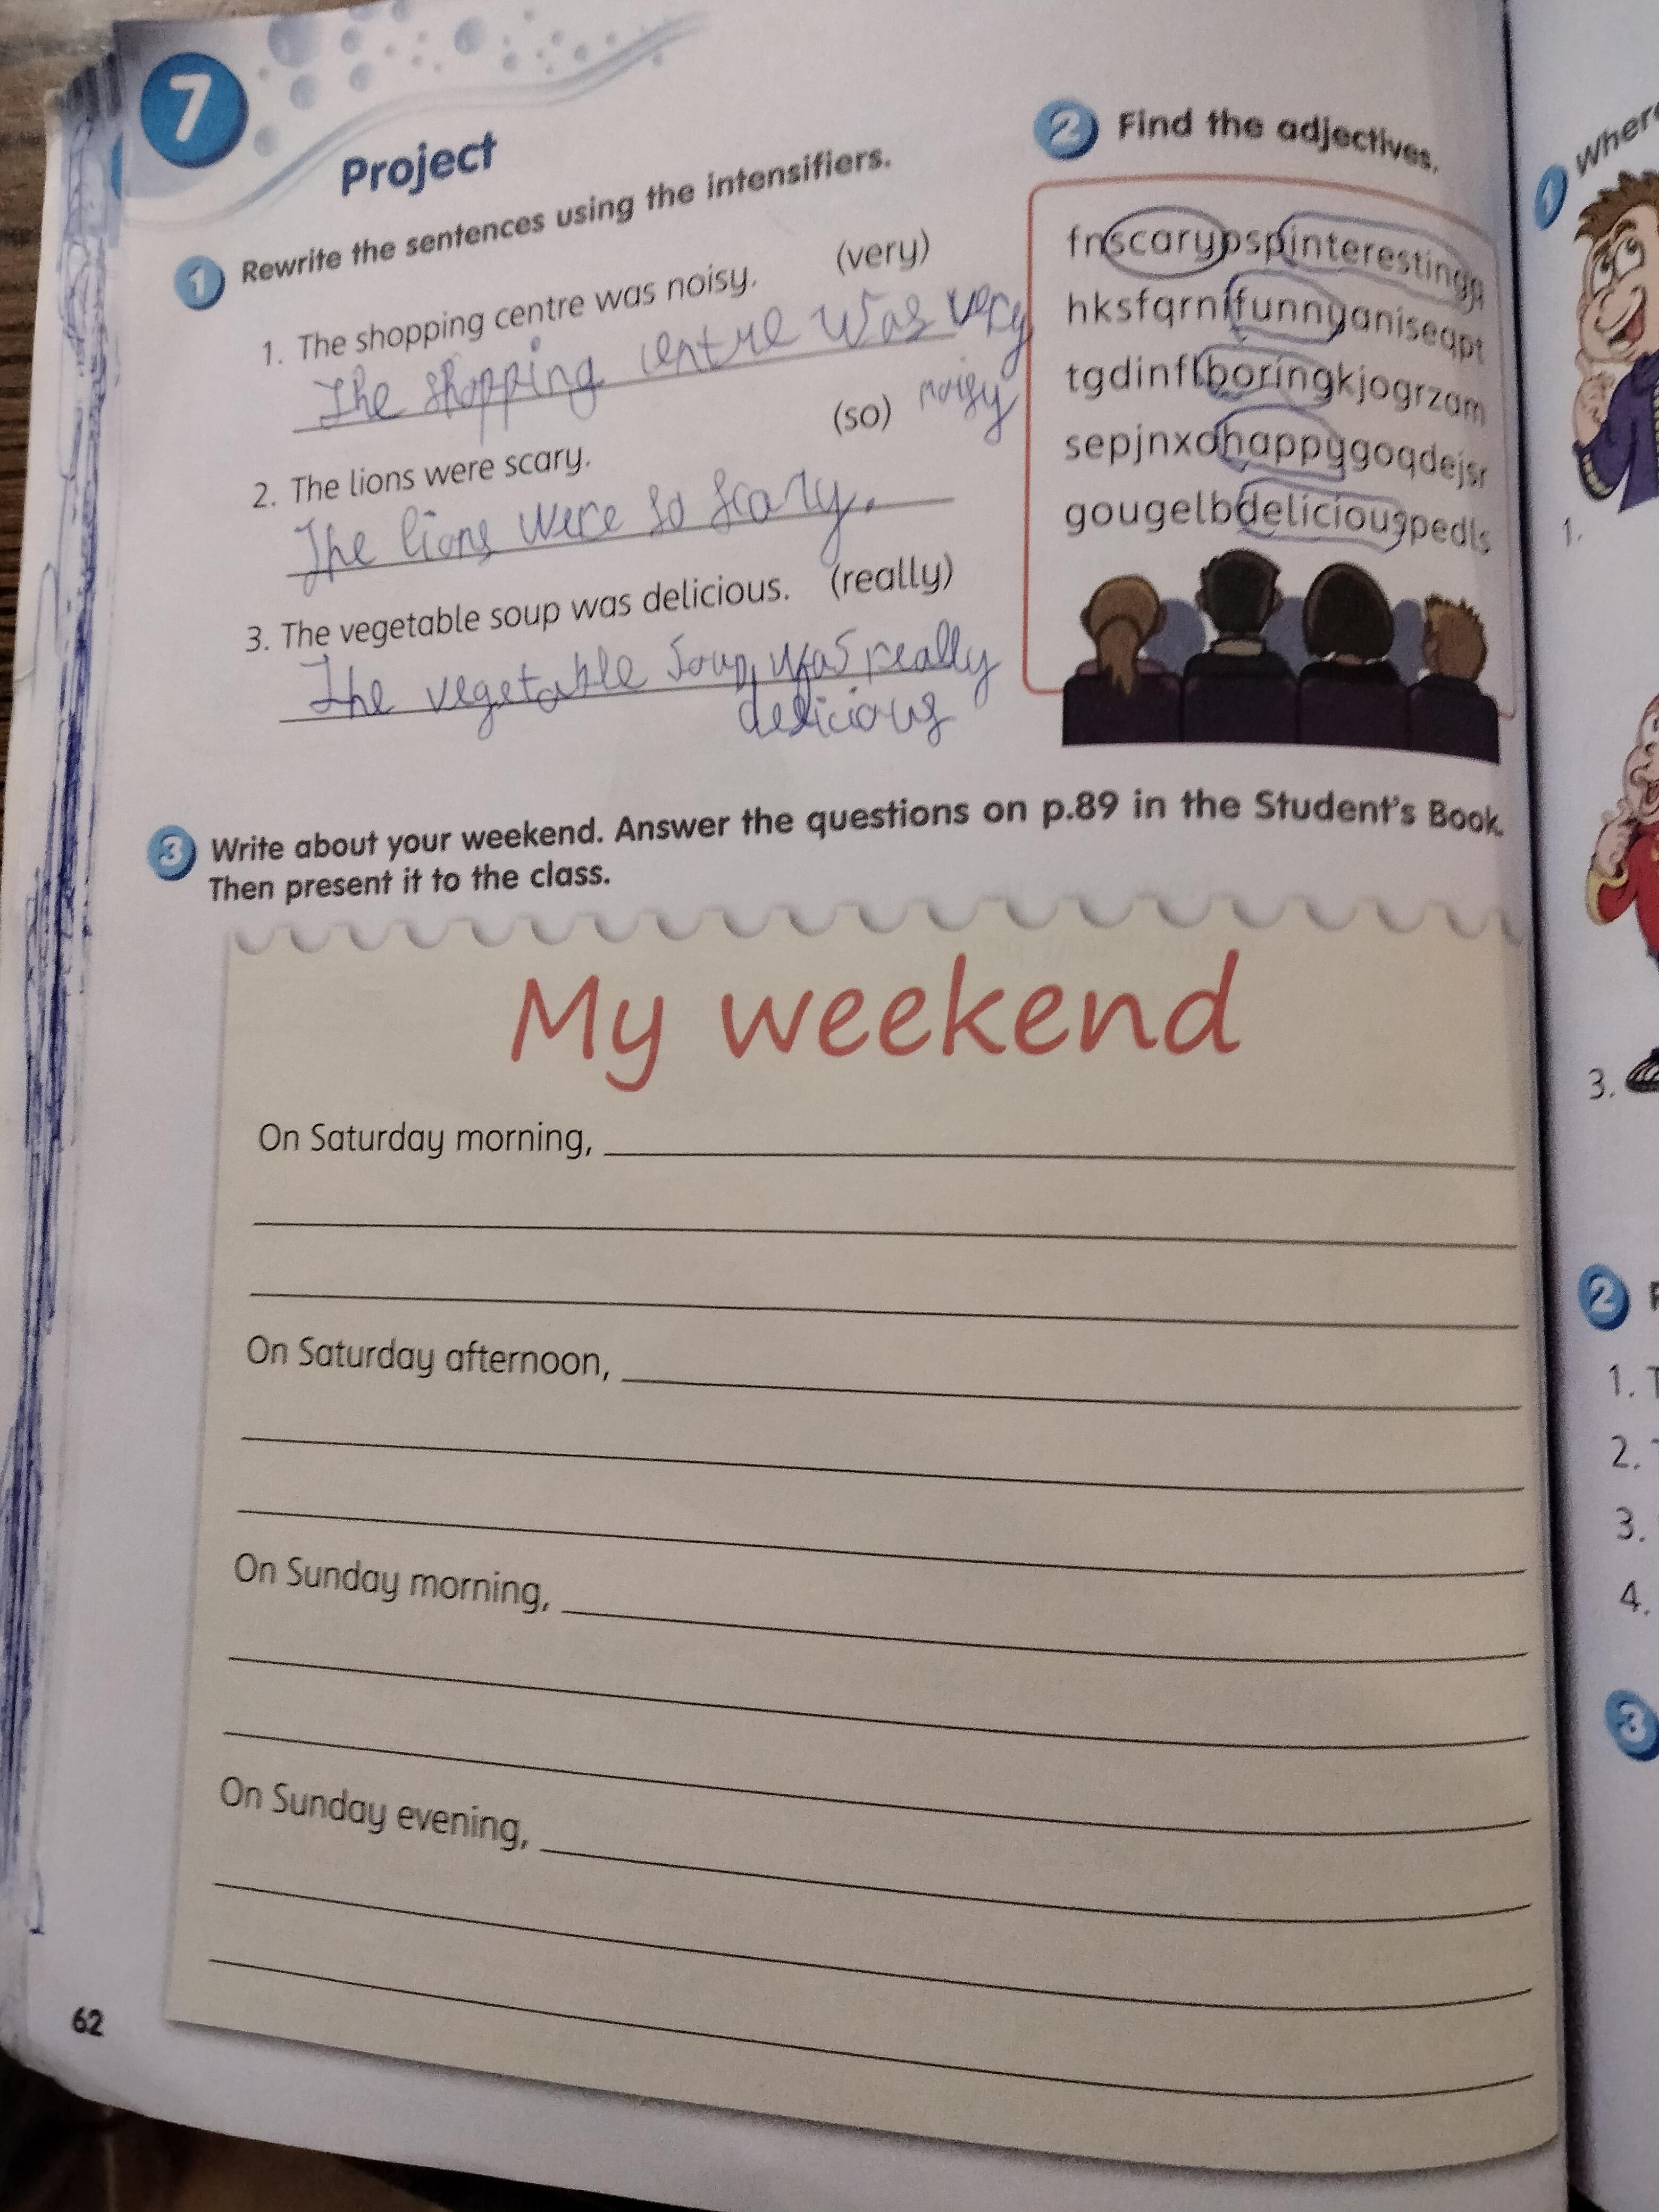 7
Project
1 Rewrite the sentences using the intensifiers.
1. The shopping centre was noisy. (very)
The shopping centre was very
noisy
2. The lions were scary. (so)
The lions were so scary.
3. The vegetable soup was delicious. (really)
The vegetable soup was really
delicious
2 Find the adjectives.
fnscarypspinterestingn
hksfqrnlfunnyaniseqpt
tgdinflboringkjogrzam
sepjnxohappygoqdejsr
gougelbdeliciouspedls
3 Write about your weekend. Answer the questions on p.89 in the Student's Book.
Then present it to the class.
My weekend
On Saturday morning,
On Saturday afternoon,
On Sunday morning,
On Sunday evening,
62
1
1.
3.
2
1.
2.
3.
4.
3